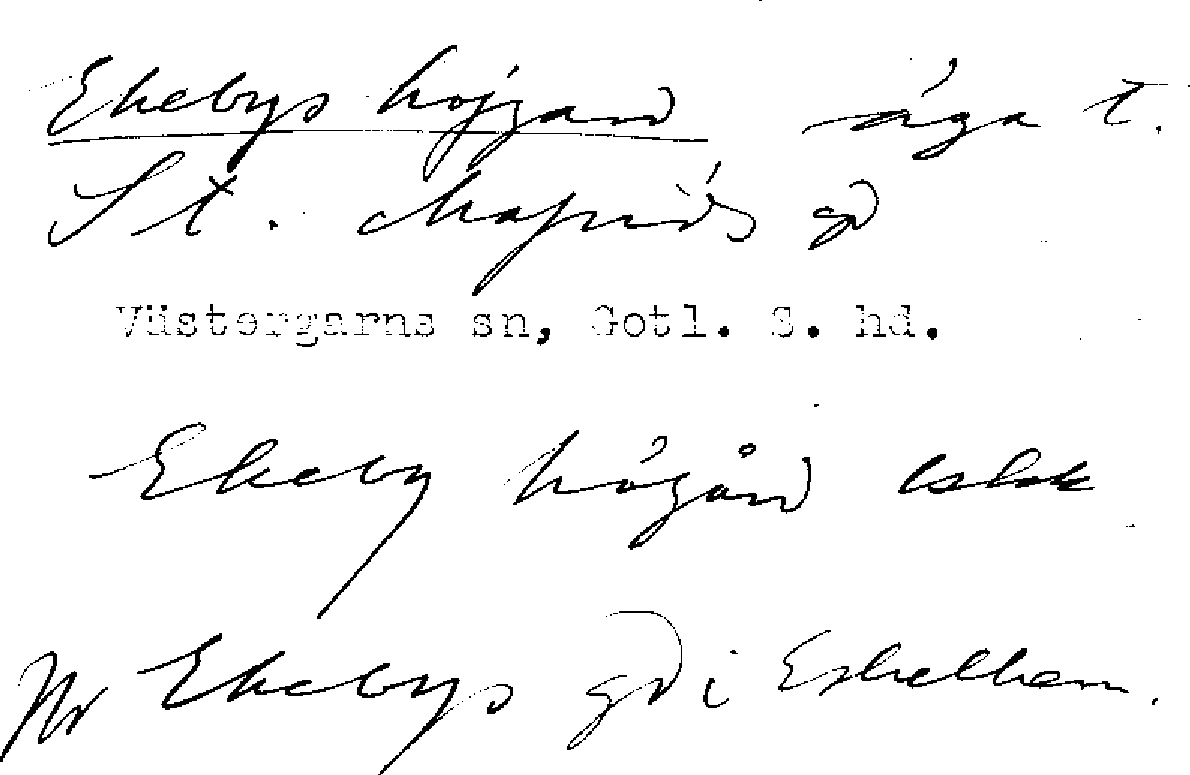 Ekebys högard äga t.
St. Mafrids gd
Västergarns sn, Gotl. S. hd.
Ekeby högård
Nr Ekebys gd i Eskelhem.